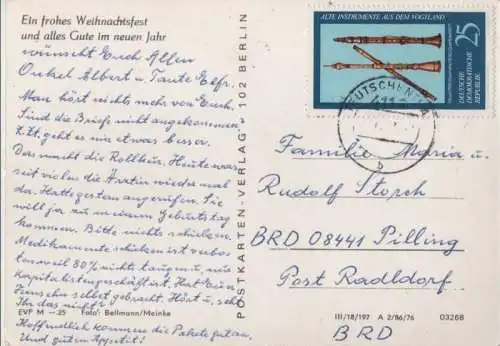 Ein frohes Weihnachtsfest
und alles Gute im neuen Jahr
wünscht Euch Allen
Onkel Elbert u. Tante Elfr.
Man hört nichts mehr von Euch.
Sind die Briefe nicht angekommen
z.Zt. geht es mir etwas besser.
Das macht die Rollkur. Heute war
seit vielen die Ärztin wieder mal
da. Hatte gestern angerufen. Sie
will ja zu meinem Geburtstag
kommen. Bitte nichts schicken.
Medikamente schicken ist verbo-
ten weil 80% nichts taugen u. mit
Kapitalistengeschäft ist. Hat
Fernsehn selbst gebracht. Hört u. seht
Ihr das nicht?
EVP M –25 Foto: Bellmann/Meinke
Hoffendlich kommen die Pakete gut an.
Und guten Appetit!
POSTKARTEN-VERLAG 102 BERLIN
ALTE INSTRUMENTE AUS DEM VOGTLAND
25
DEUTSCHE
DEMOKRATISCHE
REPUBLIK
b
Familie Maria u.
Rudolf Storch
BRD 08441 Pilling
Post Radldorf
III/18/197 A 2/86/76 03268
BRD